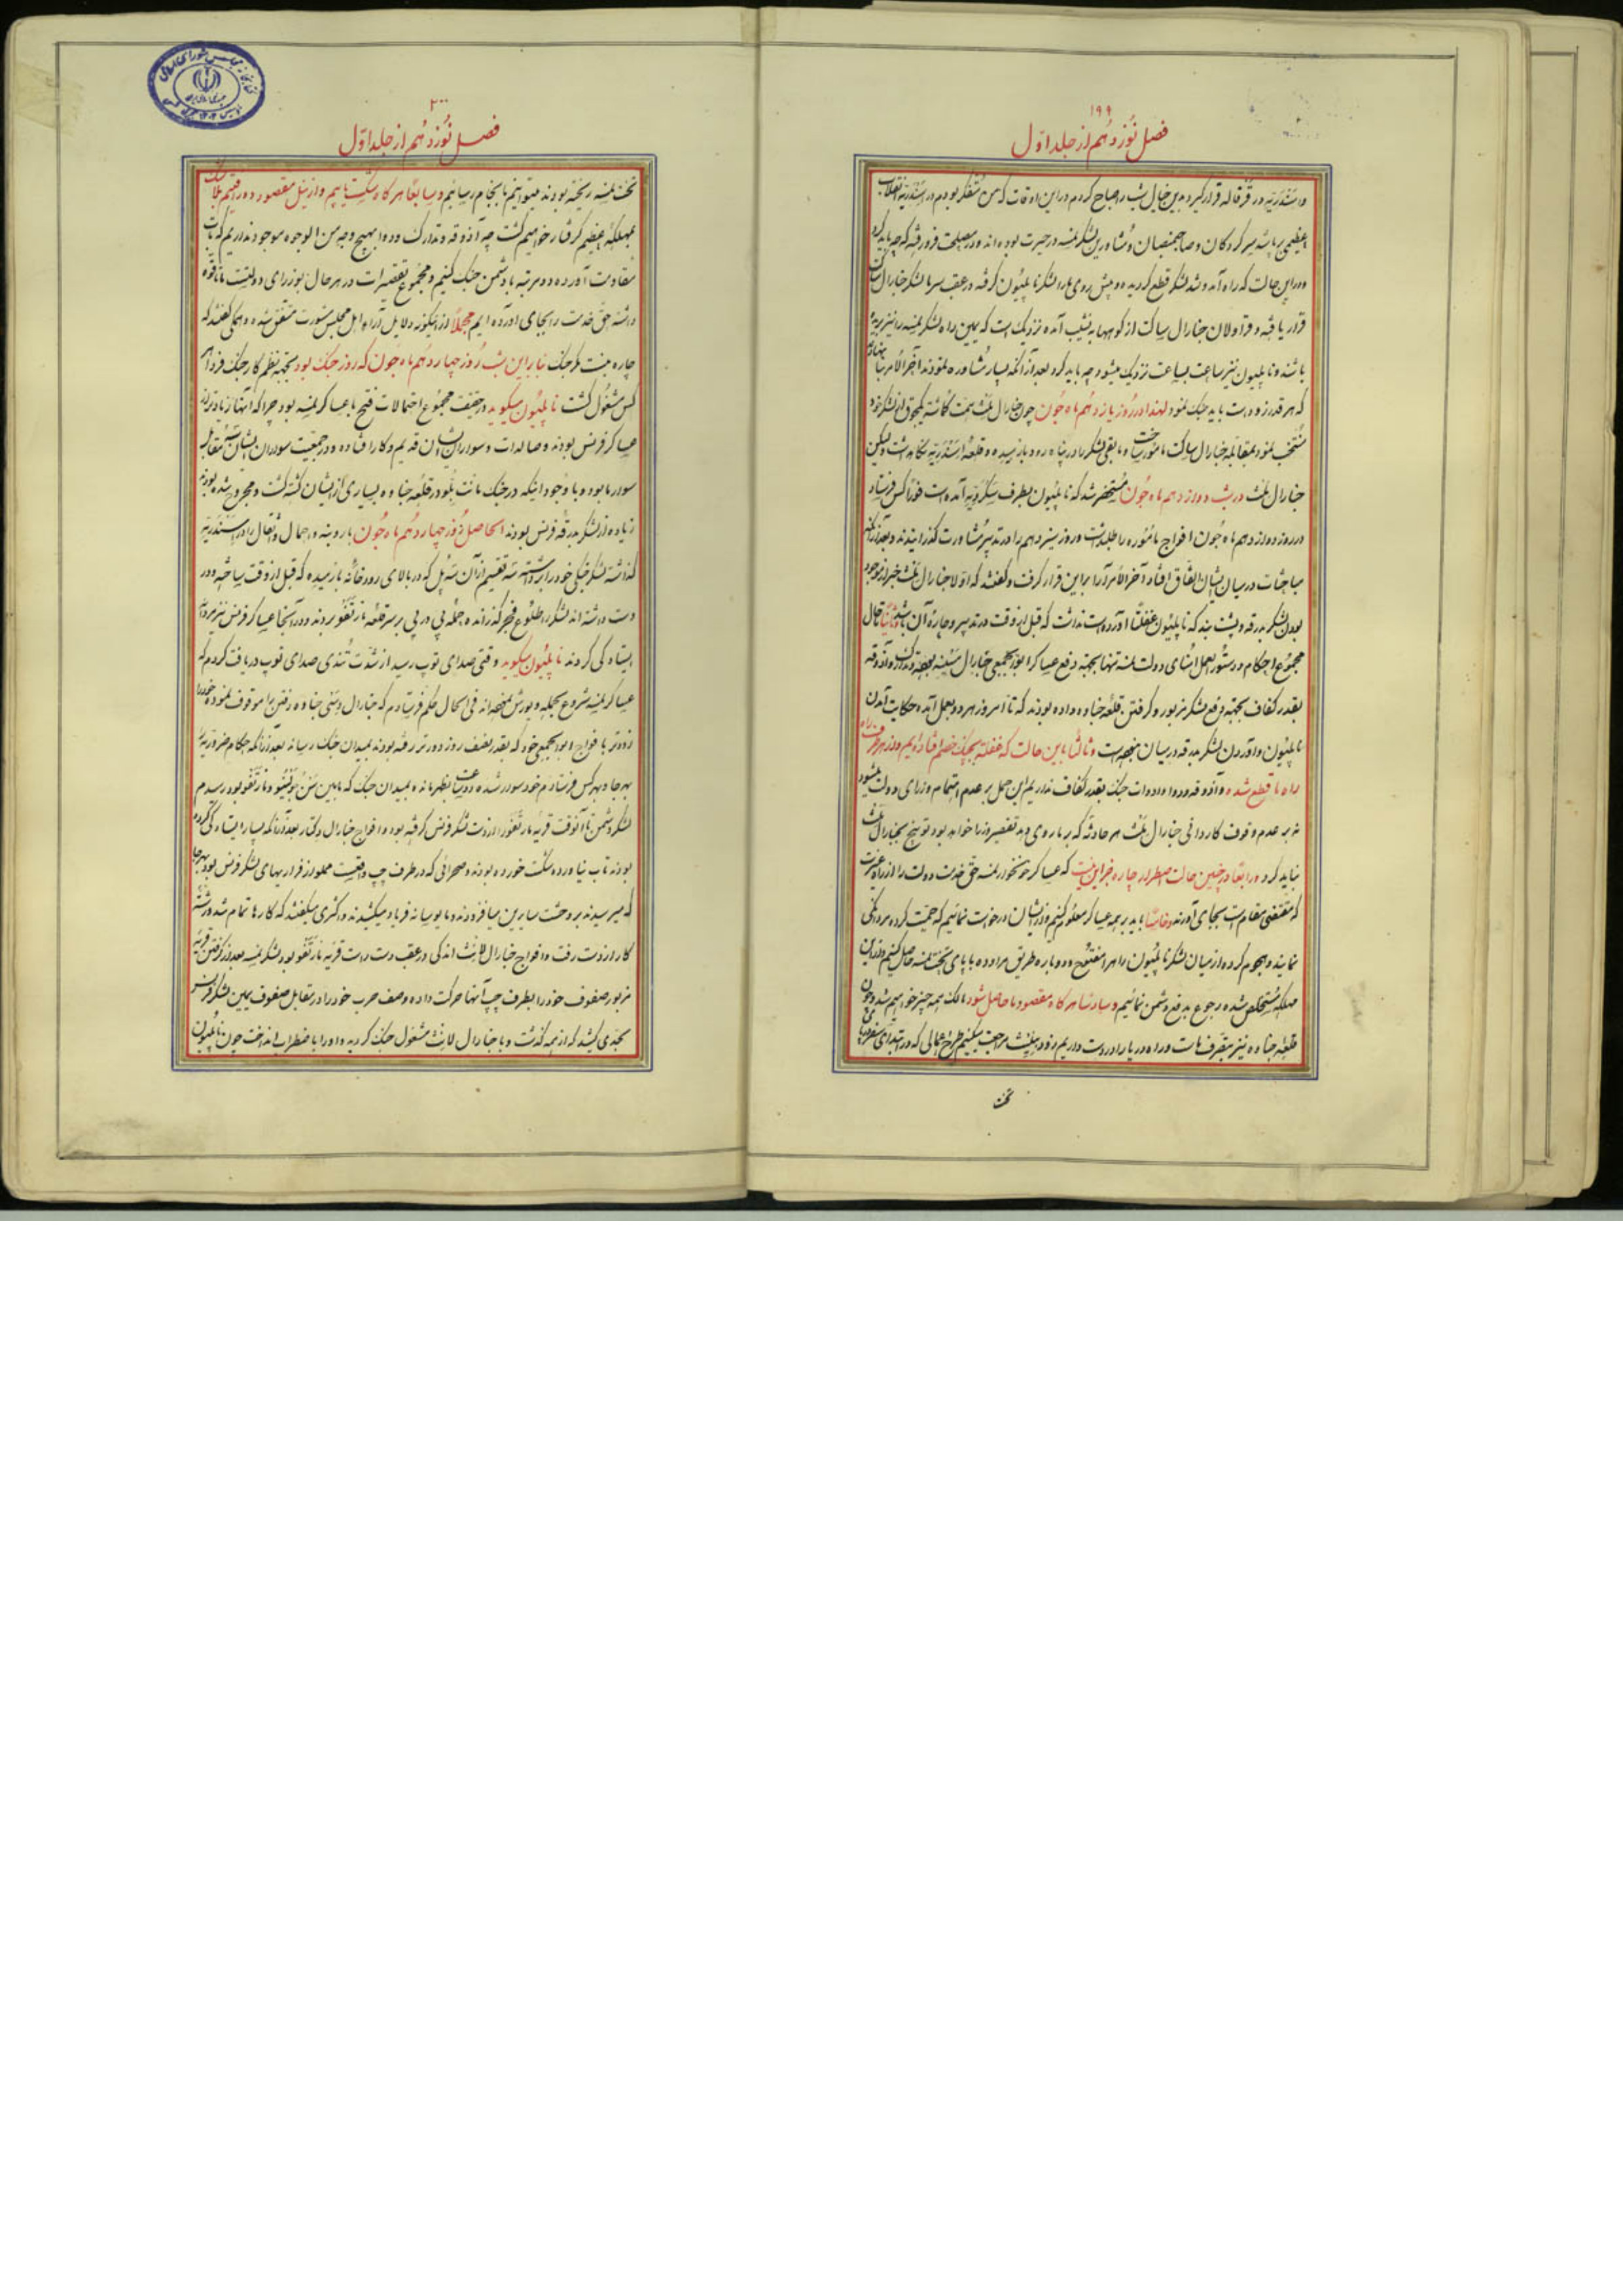 ۱۹۹
فصل نوزدهم از جلد اول
و اسَنْدَرَیّه در قرقاله قرار گیرد بدین خیال شب را صباح کردم در این اوقات که من متفکر بودم در اسَنْدَرَیّه انقلاب
عظیمی برپا شد سرکردگان و صاحبمنصبان و مشاورین لشکر نمسه در حیرت بوده اند و در مصلحت فرو رفته که چه باید کرد
و در این حالت که راه آمد و شد لشکر قطع گردیده و پیش روی ما را لشکر ناپلیون گرفته در عقب سر ما لشکر جنارال ساکت
قرار یافته و قراولان جنارال ساکت از کوهها به نشیب آمده نزدیک است که یمین راه لشکر نمسه را نیز بریده
باشند و ناپلیون نیز ساعت بساعت نزدیک میشود چه باید کرد بعد از آنکه بسیار مشاوره نمودند آخر الامر
که هر قدر زود است باید جنک نمود لهذا در روز یازدهم ماه جون چون جنارال ملث
منتخب نمود بمقابله جنارال ساکت مامور ساخت و مابقی لشکر را در پناه رود بازمیده و قلعه اسَنْدَرَیّه نگاه داشت ولیکن
جنارال ملث در شب دوازدهم ماه جون مستحضر شد که ناپلیون بطرف آمده است فورا کس فرستاد
در روز دوازدهم ماه جون افواج مأموره را طلبداشت و روز سیزدهم را در تدبیر مشاورت گذرانیدند و بعد از آنکه
مباحثات در میان ایشان اتفاق افتاد آخر الامر آرا بر این قرار گرفت و گفتند که اولا جنارال ملث خبر از موجود
بودن لشکر بدرقه و پشت بند که ناپلیون غفلتا آورده است نداشت که قبل از وقت در تدبیر و چاره آن باشد و ثانیا تا حال
مجموع احکام و دستور العمل امنای دولت نمسه تنها بجهته دفع عساکر ابوابجمعی جنارال بوده و تدارک و آذوقه
بقدر کفاف بجهته دفع لشکر مزبور و گرفتن قلعه جناوه داده بودند که تا امروز هر دو بعمل آمده حکایت آمدن
ناپلیون و آوردن لشکر بدرقه در میان نبوده است و ثالثا باین حالت که غفلة بجنک خصم افتاده ایم و از هر طرف راه
راه ما قطع شده و آذوقه و دوا و ادوات جنک بقدر کفاف نداریم این حمل بر عدم اهتمام وزرای دولت میشود
نه بر عدم وقوف کاردانی جنارال ملث هر حادثه که بر ما روی دهد تقصیر وزرا خواهد بود توبیخ بجنارال ملث
نباید کرد و رابعا در چنین حالت اضطرار چاره جز این نیست که عساکر خونخوار نمسه حق خدمت دولت را از راه غیرت
که مقتضی مقام است بجای آورند و خامسا باید بر همه عساکر معلوم کنیم و از ایشان درخواست نمائیم که حمیت کرده مردانگی
نمایند و هجوم کرده از میان لشکر ناپلیون راه را مفتوح و دوباره طریق مراوده با پای تخت نمسه حاصل کنیم و از این
مهلکه مستخلص شده رجوع بدفع دشمن نمائیم و سادسا هر گاه مقصود ما حاصل شود مالک همه چیز خواهیم شد و چون
قلعه جناوه نیز متصرف ماست و راه دریا را در دست داریم زود مراجعت میکنیم طرح اعمالی که در ابتدای سفر در پای
تخت
۲۰۰
فصل نوزدهم از جلد اول
تخت نمسه ریخته بودند میتوانیم بانجام رسانیم و سابعا هر گاه شکست یابیم و از نیل مقصود دور افتیم بلا شک
بمهلکه عظیم گرفتار خواهیم گشت چه آذوقه و تدارک و دوا بهیچ وجه من الوجوه موجود نداریم که تاب
مقاومت آورده دو مرتبه با دشمن جنک کنیم و مجموع تقصیرات در هر حال بوزرای دولتست ما تا قوه
داشته حق خدمت را بجای آورده ایم مجملا از اینگونه دلایل آرای اهل مجلس مشورت متفق شده و همگی گفتند که
چاره نیست مگر جنک بنابراین شب روز چهاردهم ماه جون که روز جنک بود بجهته نظم کار جنک فردا هر
کس مشغول گشت ناپلیون میگوید در حقیقت مجموع احتمالات فتح با عساکر نمسه بود چرا که آنها زیادتر از
عساکر فرنس بودند و صالدات و سواران ایشان قدیم و کار افتاده و در جمعیت سواران ایشان سه مقابل
سوار ما بود و با وجود اینکه در جنک مانت بلو در قلعه جناوه بسیاری از ایشان کشته گشت و مجروح شده بودند
زیاده از لشکر بدرقه فرنس بودند الحاصل روز چهاردهم ماه جون بار و بنه و احمال و اثقال را در اسَنْدَرَیّه
گذاشته لشکر جنگی خود را برداشته سه تقسیم از آن سه پل که در بالای رودخانه بازمیده که قبل از وقت ساخته و در
دست داشته اند لشکر را طلوع فجر گذرانده جمله پی در پی بر سر قلعه مارنغو بردند و در آنجا عساکر فرنس نیز مردانه
ایستادگی کردند ناپلیون میگوید وقتی صدای توپ رسید از شدت تندی صدای توپ دریافت کردم که
عساکر نمسه شروع بحمله و یورش نموده اند فی الحال حکم فرستادم که جنارال دسی جناوه رفتن را موقوف نموده خود را
زودتر با افواج ابوابجمعی خود که بقدر نصف روز دورتر رفته بودند بمیدان جنک رساند بعد از آنکه احکام ضروریه را
بهر جا و بهر کس فرستادم خود سوار شده دو ساعت بظهر مانده بمیدان جنک که مابین سن جولینو و مارنغو بود رسیدم
لشکر دشمن تا آنوقت قریه مارنغو را از دست لشکر فرنس گرفته بود و افواج جنارال وکتار بعد از آنکه بسیار ایستادگی کرده
بودند تاب نیاورده شکست خورده بودند و صحرائی که در طرف چپ واقعست مملو از فراریهای لشکر فرنس بود بهر جا
که میرسیدند بر وحشت سایرین میافزودند و مایوسانه فریاد میکشیدند و اکثری میگفتند که کارها تمام شده رشته
کار از دست رفت و افواج جنارال لانث اندکی در عقب دست راست قریه مارنغو بود لشکر نمسه بعد از گرفتن قریه
مزبور صفوف خود را بطرف چپ آنها حرکت داده و صف حرب خود را در مقابل صفوف یمین لشکر فرنس
بحدی کشید که از نیمه گذشت و با جنارال لانث مشغول جنک گردید و او را باضطراب انداخت چون ناپلیون